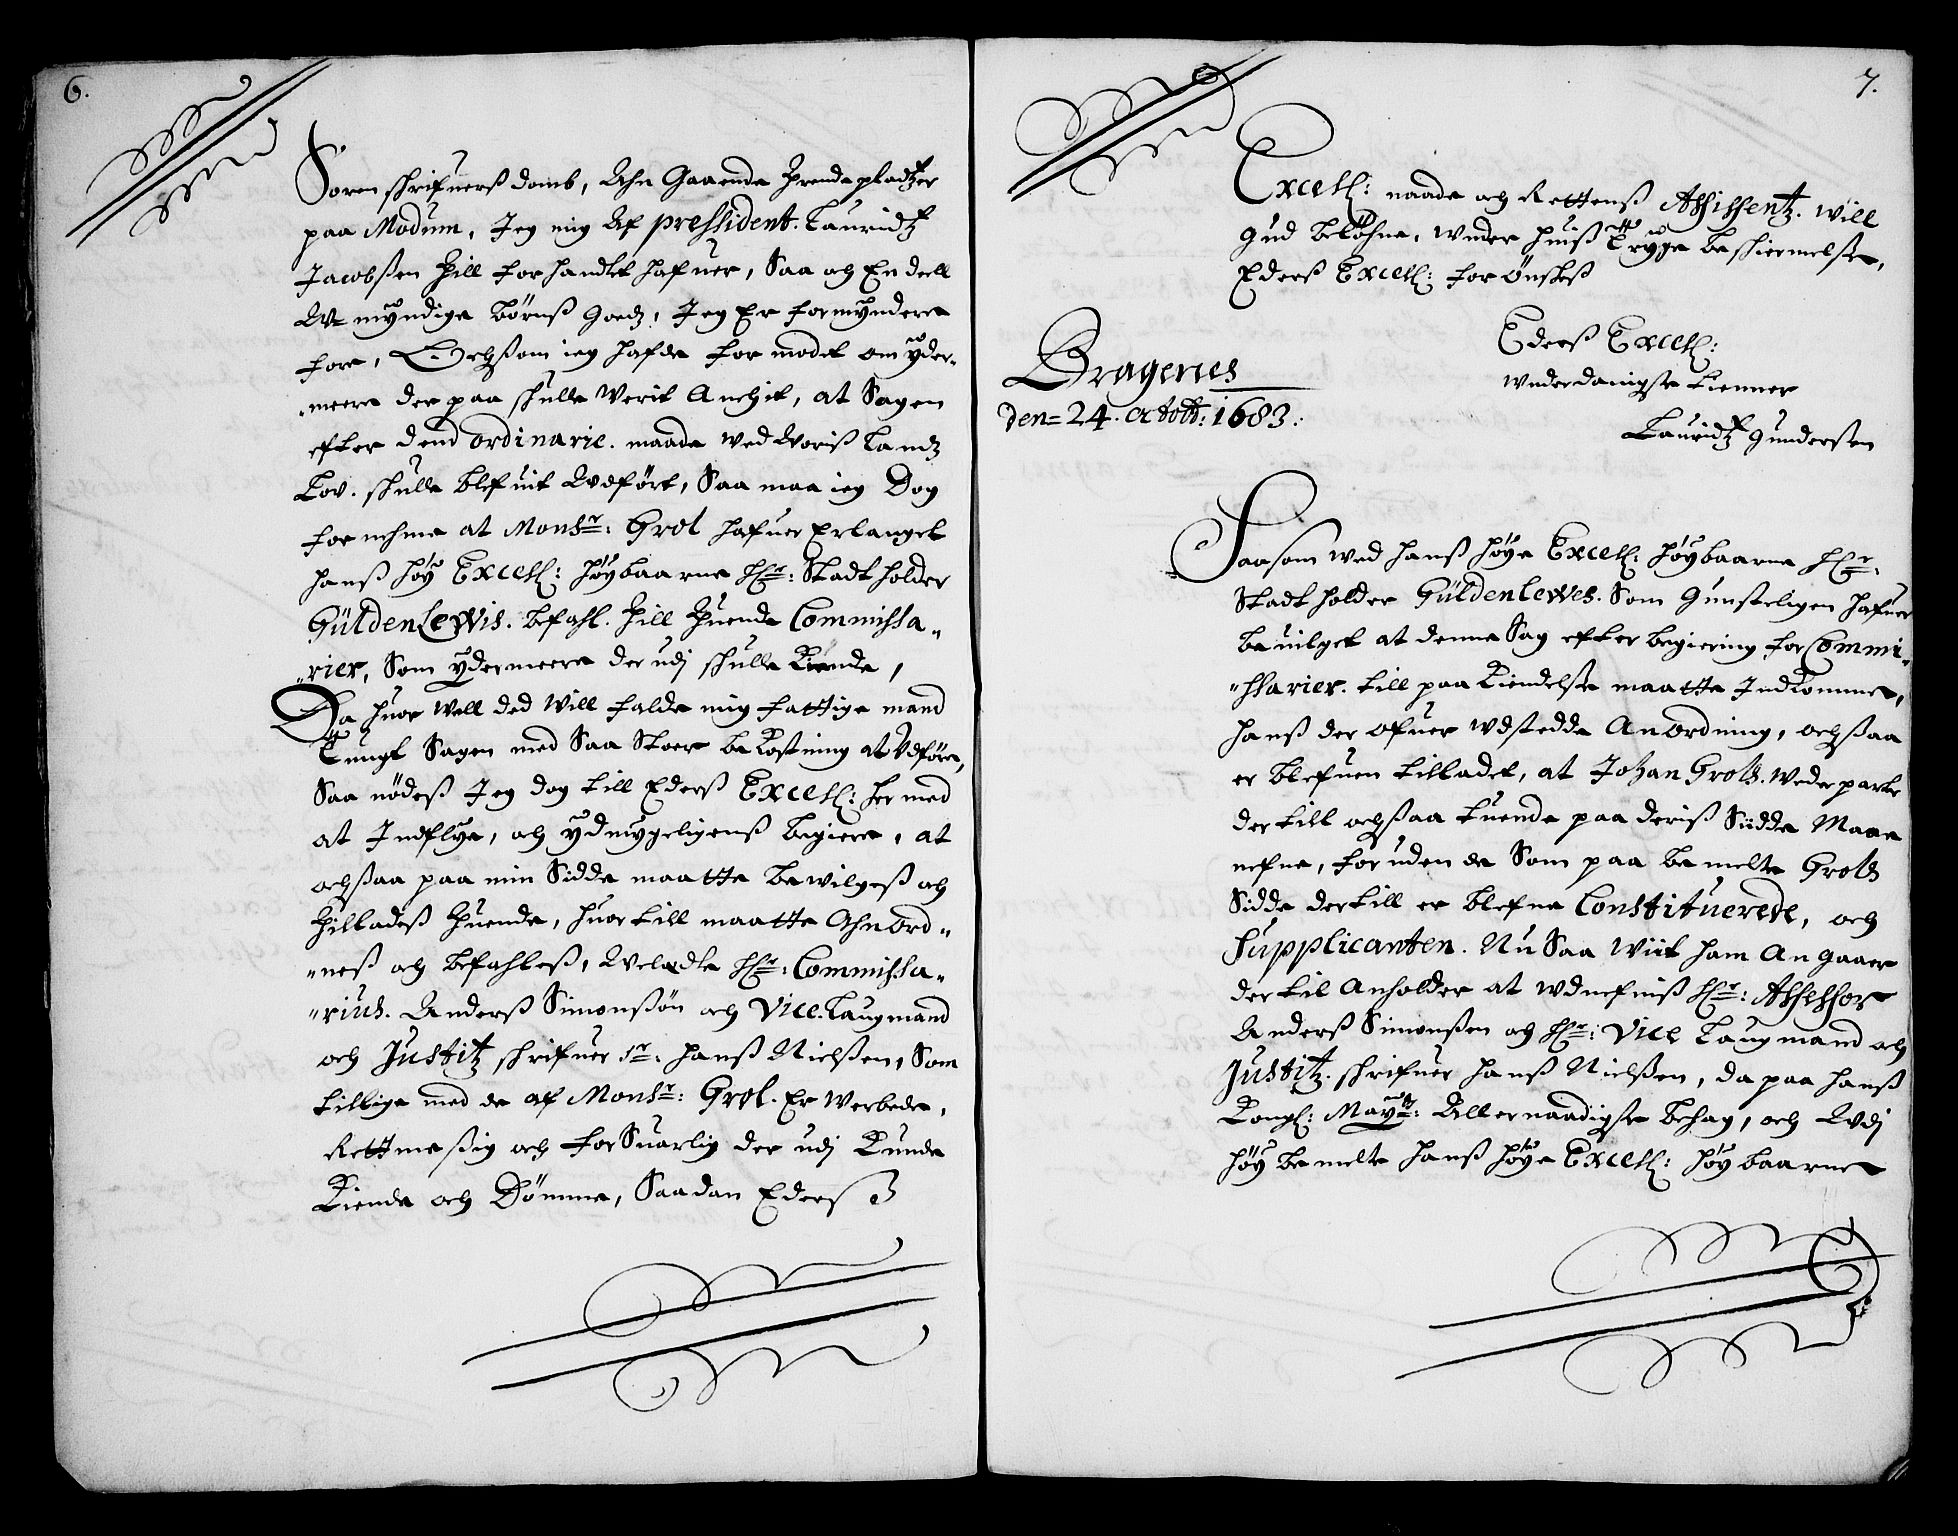 6.
Soren schrifuerß domb, Ahn Gaaende Trende pladtzer
paa Modum, Jeg mig Af pressident. Lauridtz
Jacobßen Till forhandlet hafuer, Saa och En deell
U-mÿndige börnß goedz, Jeg Er formÿndere
fore, Ochßom ieg hafde formodet om ÿder-
meere der paa skulle Verit Anchit, at Sagen
efter dend ordinarie. maade wed Woriß Landz
Lov. skulle blefuit Udfört, Saa maa ieg Dog
fornehme at Monsr: Grol hafuer Erlanget
hanß höÿ Excell: höÿbaarne Hr: Stadtholder
Güldenlewis. befahl. Till Tuende Commissa„
„rier, Som ÿdermeere der udj skulle Kiende,
Da huor Well ded Will falde mig fattige mand
Tungt Sagen med Saa Stoer bekostning at Udföre,
Saa nödeß Jeg dog till Ederß Excell: her med
at Indflÿe, och ÿdmÿgeligenß begiere, at
ochßaa paa min Sidde maatte bewilgeß och
Tilladeß Tuende, huortill maatte Ahnord„
„neß och befahleß, Welædle Hr: Commissa„
„rius. Anderß Simonßön och Vice. Laugmand
och Justitz schrifuer Sr: Hanß Nielßen, Som
tillige med de af Monsr: Grol. Er Werbede,
Rettmeßig och forSuarlig der udj Kunde
Kiende och Dömme, Saadan Ederß
7.
Excell: naade och Rettenß Assistentz. will
Gud belöhne, under huiß Trÿge beskiermelße,
Ederß Excell: forönskeß
Ederß Excell:
underdanigste tienner
Lauridtz Gundersen
Bragenes
den=24. octob: 1683:
Saasom wed Hanß höÿe Excell: höÿbaarne Hr:
Stadtholder Güldenlewes. Som gunsteligen hafuer
beuilget at denne Sag efter begiering for Commi„
„ssarier. till paa Kiendelße maatte Indkomme,
Hanß der ofuer udstedde Anordning, ochßaa
er blefuen tilladet, at Johan Grols. Wederparte
dertill ochßaa tuende paa deriß Siidde Maae
nefne, foruden de Som paa bemelte Grols
Sidde dertill er blefne Constituerede, och
Supplicanten. Nu Saa Wiit ham Angaaer
dertil Anholder at udnefniß Hr: Assessor
Anderß Simonßen och Hr: Vice Laugmand och
Justitz. schrifuer Hanß Nielßen, da paa Hanß
Kongl: Maÿtt: Allernaadigste behag, och Udj
höÿbemelte Hanß höÿe Excell: höÿbaarne